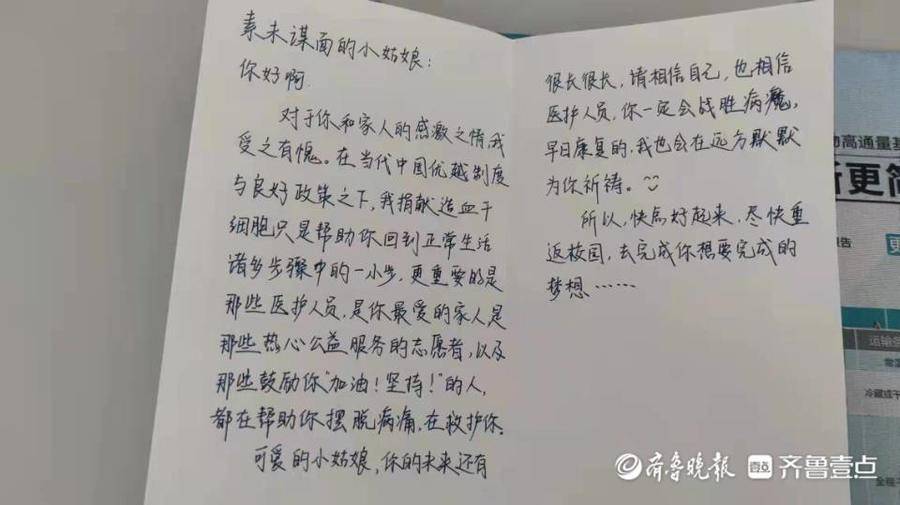 素未谋面的小姑娘：
你好啊.
对于你和家人的感激之情,我
受之有愧。在当代中国优越制度
与良好政策之下,我捐献造血干
细胞只是帮助你回到正常生活
诸多步骤中的一小步,更重要的是
那些医护人员,是你最爱的家人是
那些热心公益服务的志愿者,以及
那些鼓励你"加油！坚持！"的人,
都在帮助你摆脱病痛,在救护你。
可爱的小姑娘,你的未来还有
很长很长,请相信自己,也相信
医护人员,你一定会战胜病魔,
早日康复的,我也会在远方默默
为你祈祷。
所以,快点好起来,尽快重
返校园,去完成你想要完成的
梦想……
高通量基
更简
报告
更
运输
常温
冷藏或干
全程
齐鲁晚报 齐鲁壹点